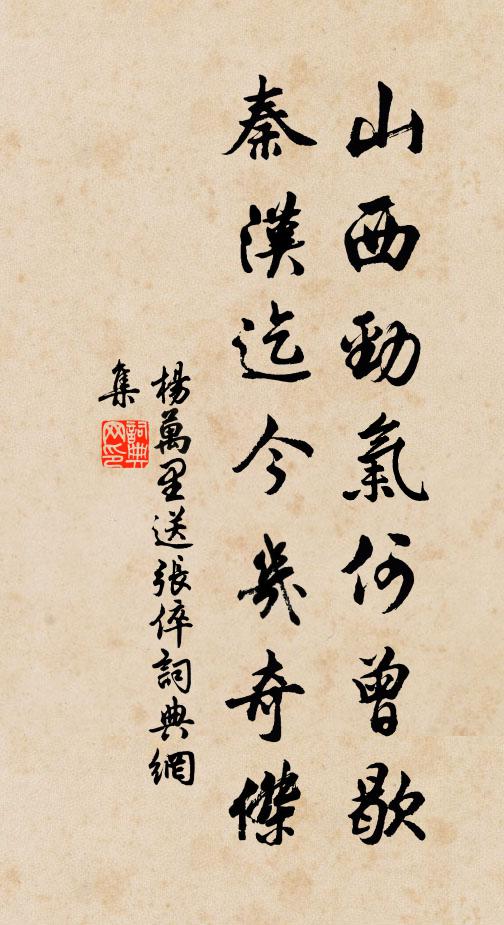 山西勁氣何曾歇
秦漢迄今幾奇傑
楊萬里送張倅詞典網
集
詞典
网印